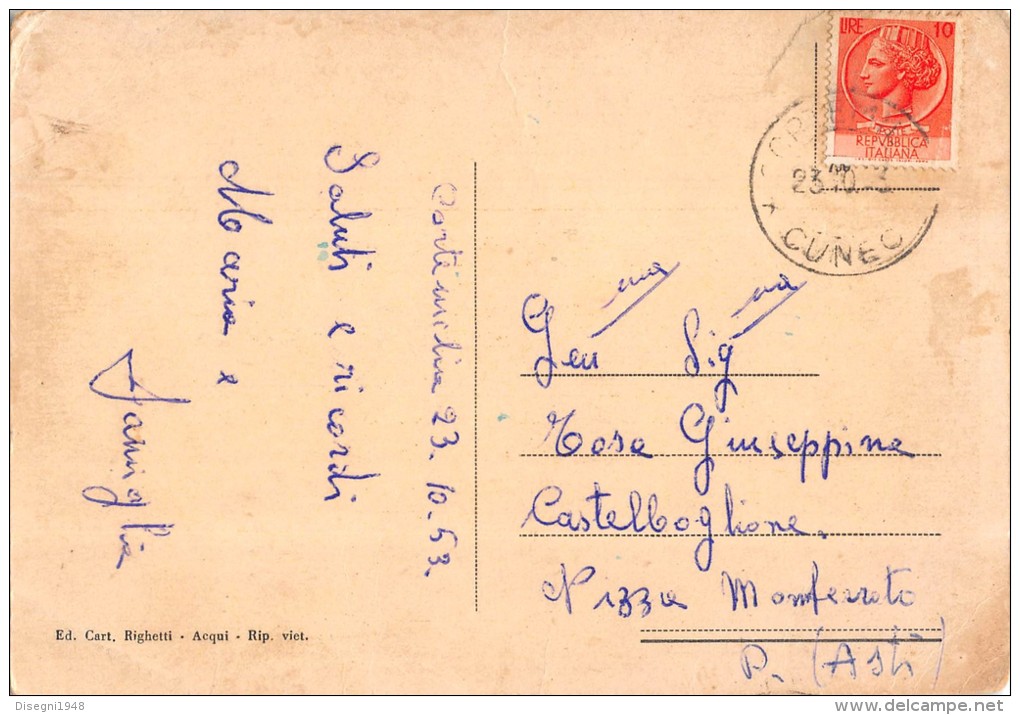 Cortemilia 23.10.53.
Saluti e ricordi
Maria e
Famiglia
Ed. Cart. Righetti - Acqui - Rip. viet.
LIRE 10
REPVBBLICA
ITALIANA
23 10
CUNEO
Gen ma Sig ra
Rosa Giuseppina
Castelboglione.
Nizza Monferrato
P. (Asti)
Disegni1948
delcampe.net